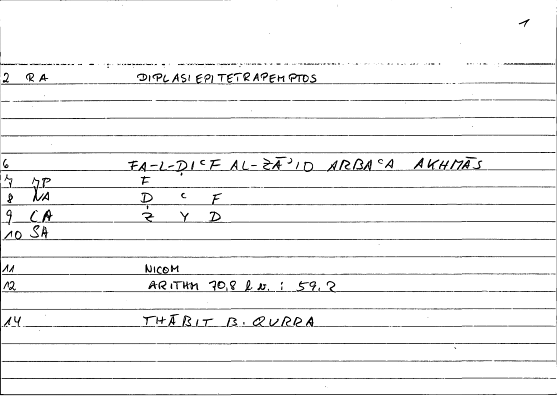 1
2 RA DIPLASIEPITETRAPEMPTOS
6 FA-L-ḌIᶜF AL-ZĀʾID ARBAᶜA AKHMĀS
7 F
8 NA Ḍ ᶜ F
9 CA Z Y D
10 SA
11 NICOM
12 ARITHM 70,8 : 59,2
14 THĀBIT B. QURRA